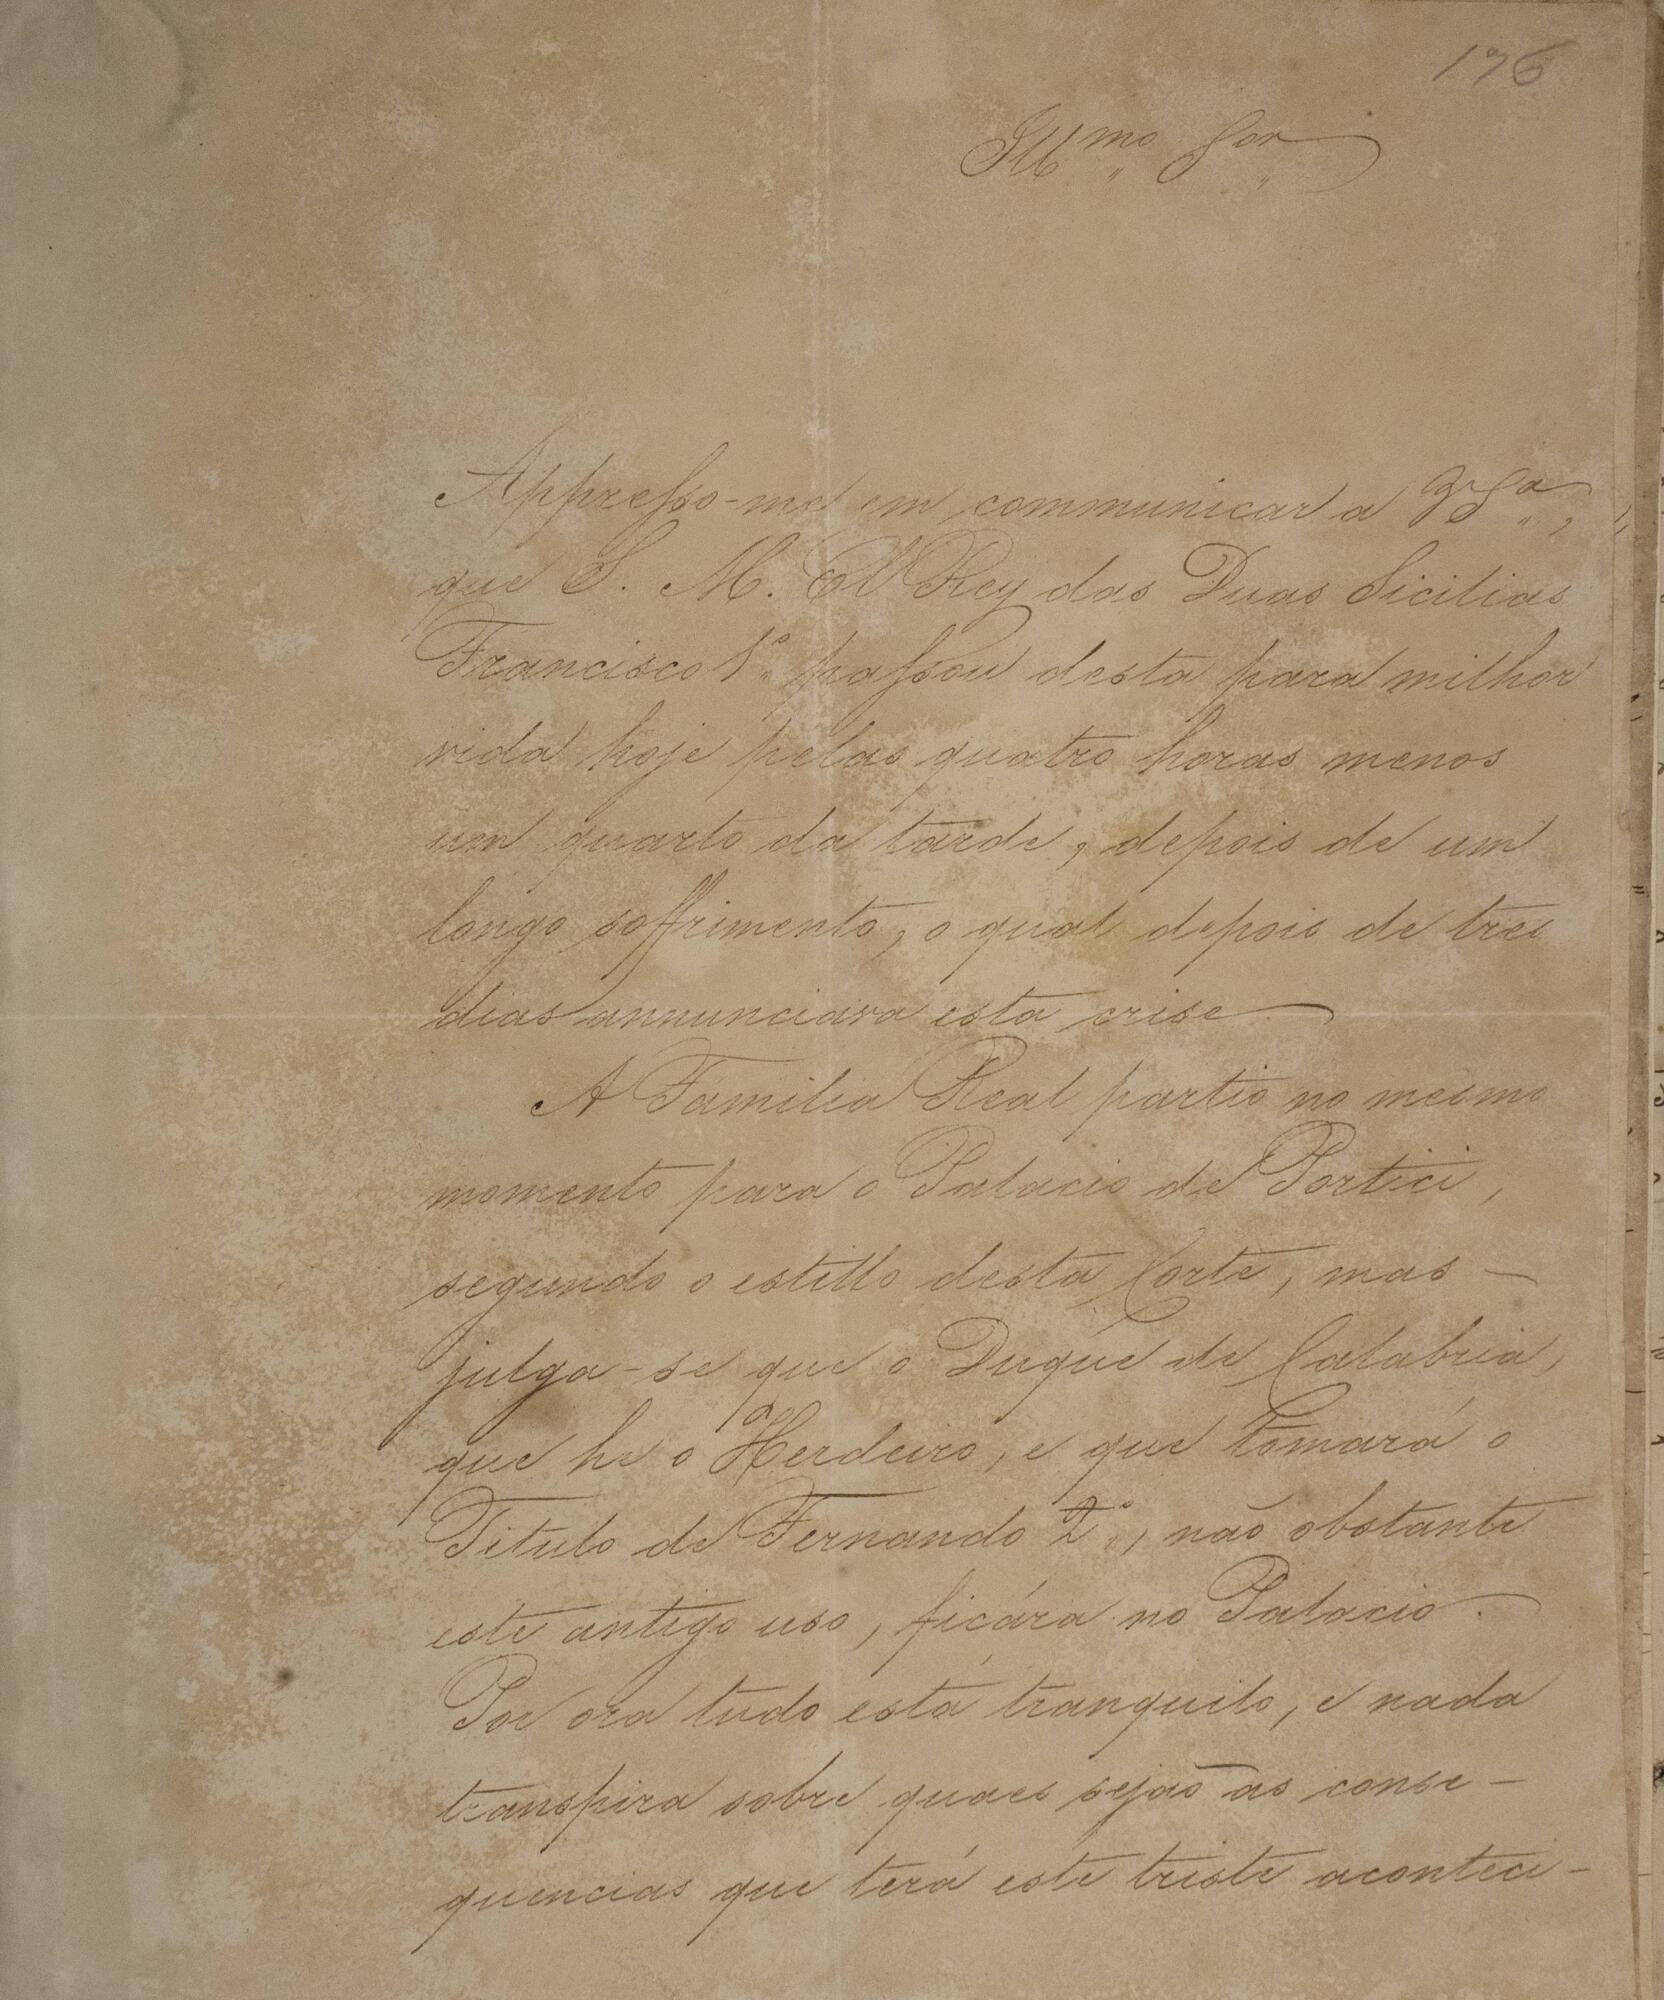 176
Illmo Sor
Appresso-me em communicar a VSa,
que S. M. El Rey das Duas Sicilias
Francisco 1º passou desta para milhor
vida hoje pelas quatro horas menos
um quarto da tarde, depois de um
longo soffrimento, o qual depois de tres
dias annunciava esta crise
A Familia Real partio no mesmo
momento para o Palacio de Portici,
segundo o estillo desta Corte, mas
julga-se que o Duque de Calabria,
que he o Herdeiro, e que tomará o
Titulo de Fernando 2º, não obstante
este antigo uso, ficára no Palacio.
Por ora tudo está tranquilo, e nada
transpira sobre quaes sejão as conse-
quencias que terá este triste aconteci-